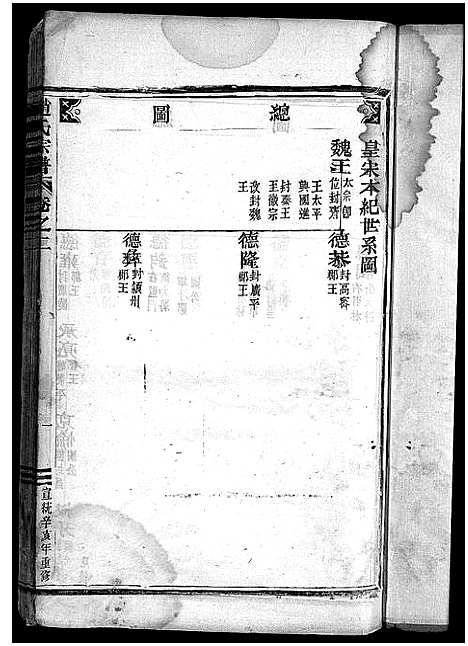 總圖
皇宋本紀世系圖
魏王 太宗卽位封齊王太平興國進封秦王至徽宗改封魏王
德恭 封高密郡王
德隆 封廣平郡王
德彝 封潁州郡王
趙氏宗譜 卷之
一
宣統辛亥年重修